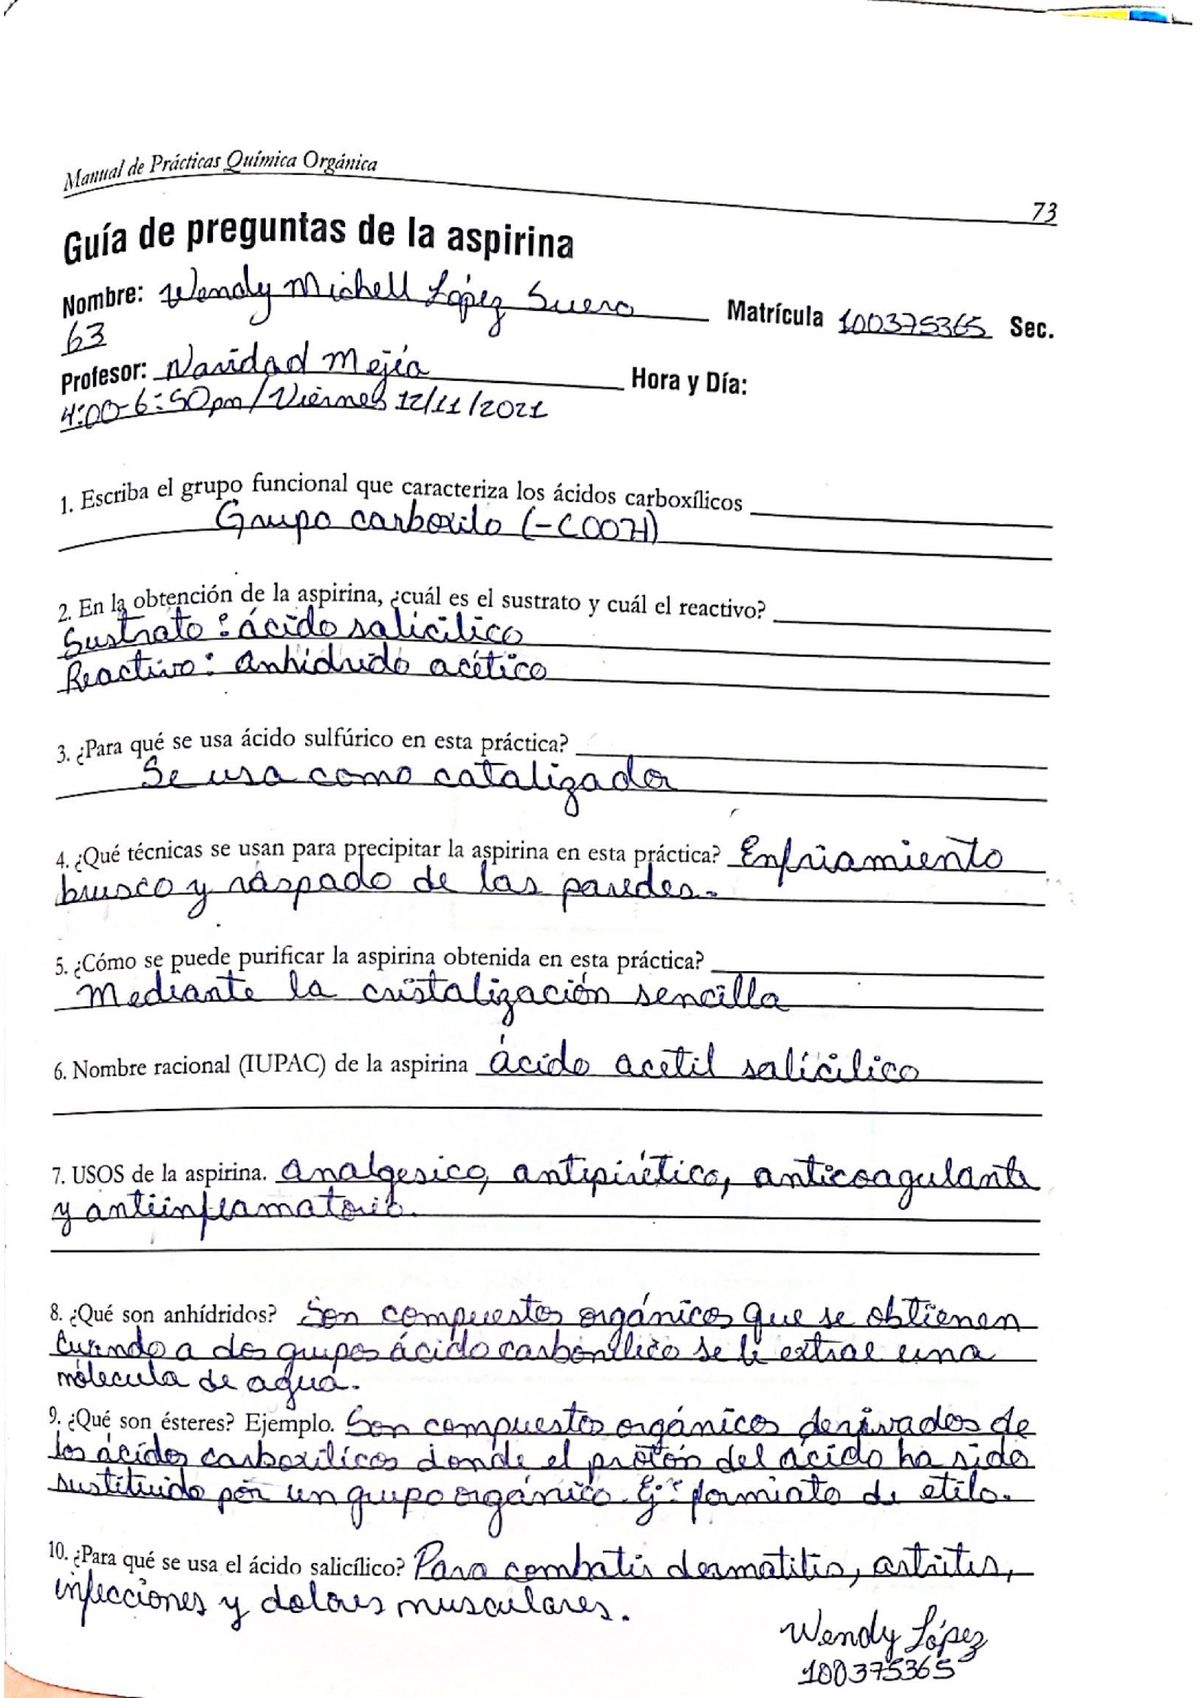 Manual de Prácticas Química Orgánica
73
Guía de preguntas de la aspirina
Nombre: Wendy Michell López Suero Matrícula 100375365 Sec.
63
Profesor: Navidad Mejía Hora y Día:
4:00-6:50pm/Viernes 12/11/2021
1. Escriba el grupo funcional que caracteriza los ácidos carboxílicos
Grupo carboxilo (-COOH)
2. En la obtención de la aspirina, ¿cuál es el sustrato y cuál el reactivo?
Sustrato: ácido salicílico
Reactivo: anhidrido acético
3. ¿Para qué se usa ácido sulfúrico en esta práctica?
Se usa como catalizador
4. ¿Qué técnicas se usan para precipitar la aspirina en esta práctica? Enfriamiento
brusco y raspado de las paredes.
5. ¿Cómo se puede purificar la aspirina obtenida en esta práctica?
Mediante la cristalización sencilla
6. Nombre racional (IUPAC) de la aspirina ácido acetil salícilico
7. USOS de la aspirina. Analgesico, antipirético, anticoagulante
y antiinflamatorio.
8. ¿Qué son anhídridos? Son compuestos orgánicos que se obtienen
cuando a dos grupos ácido carboxílico se le extrae una
molecula de agua.
9. ¿Qué son ésteres? Ejemplo. Son compuestos orgánicos derivados de
los ácidos carboxílicos donde el protón del ácido ha sido
sustituido por un grupo orgánico. Ej: formiato de etilo.
10. ¿Para qué se usa el ácido salicílico? Para combatir dermatitis, artritis,
infecciones y dolores musculares.
Wendy López
100375365